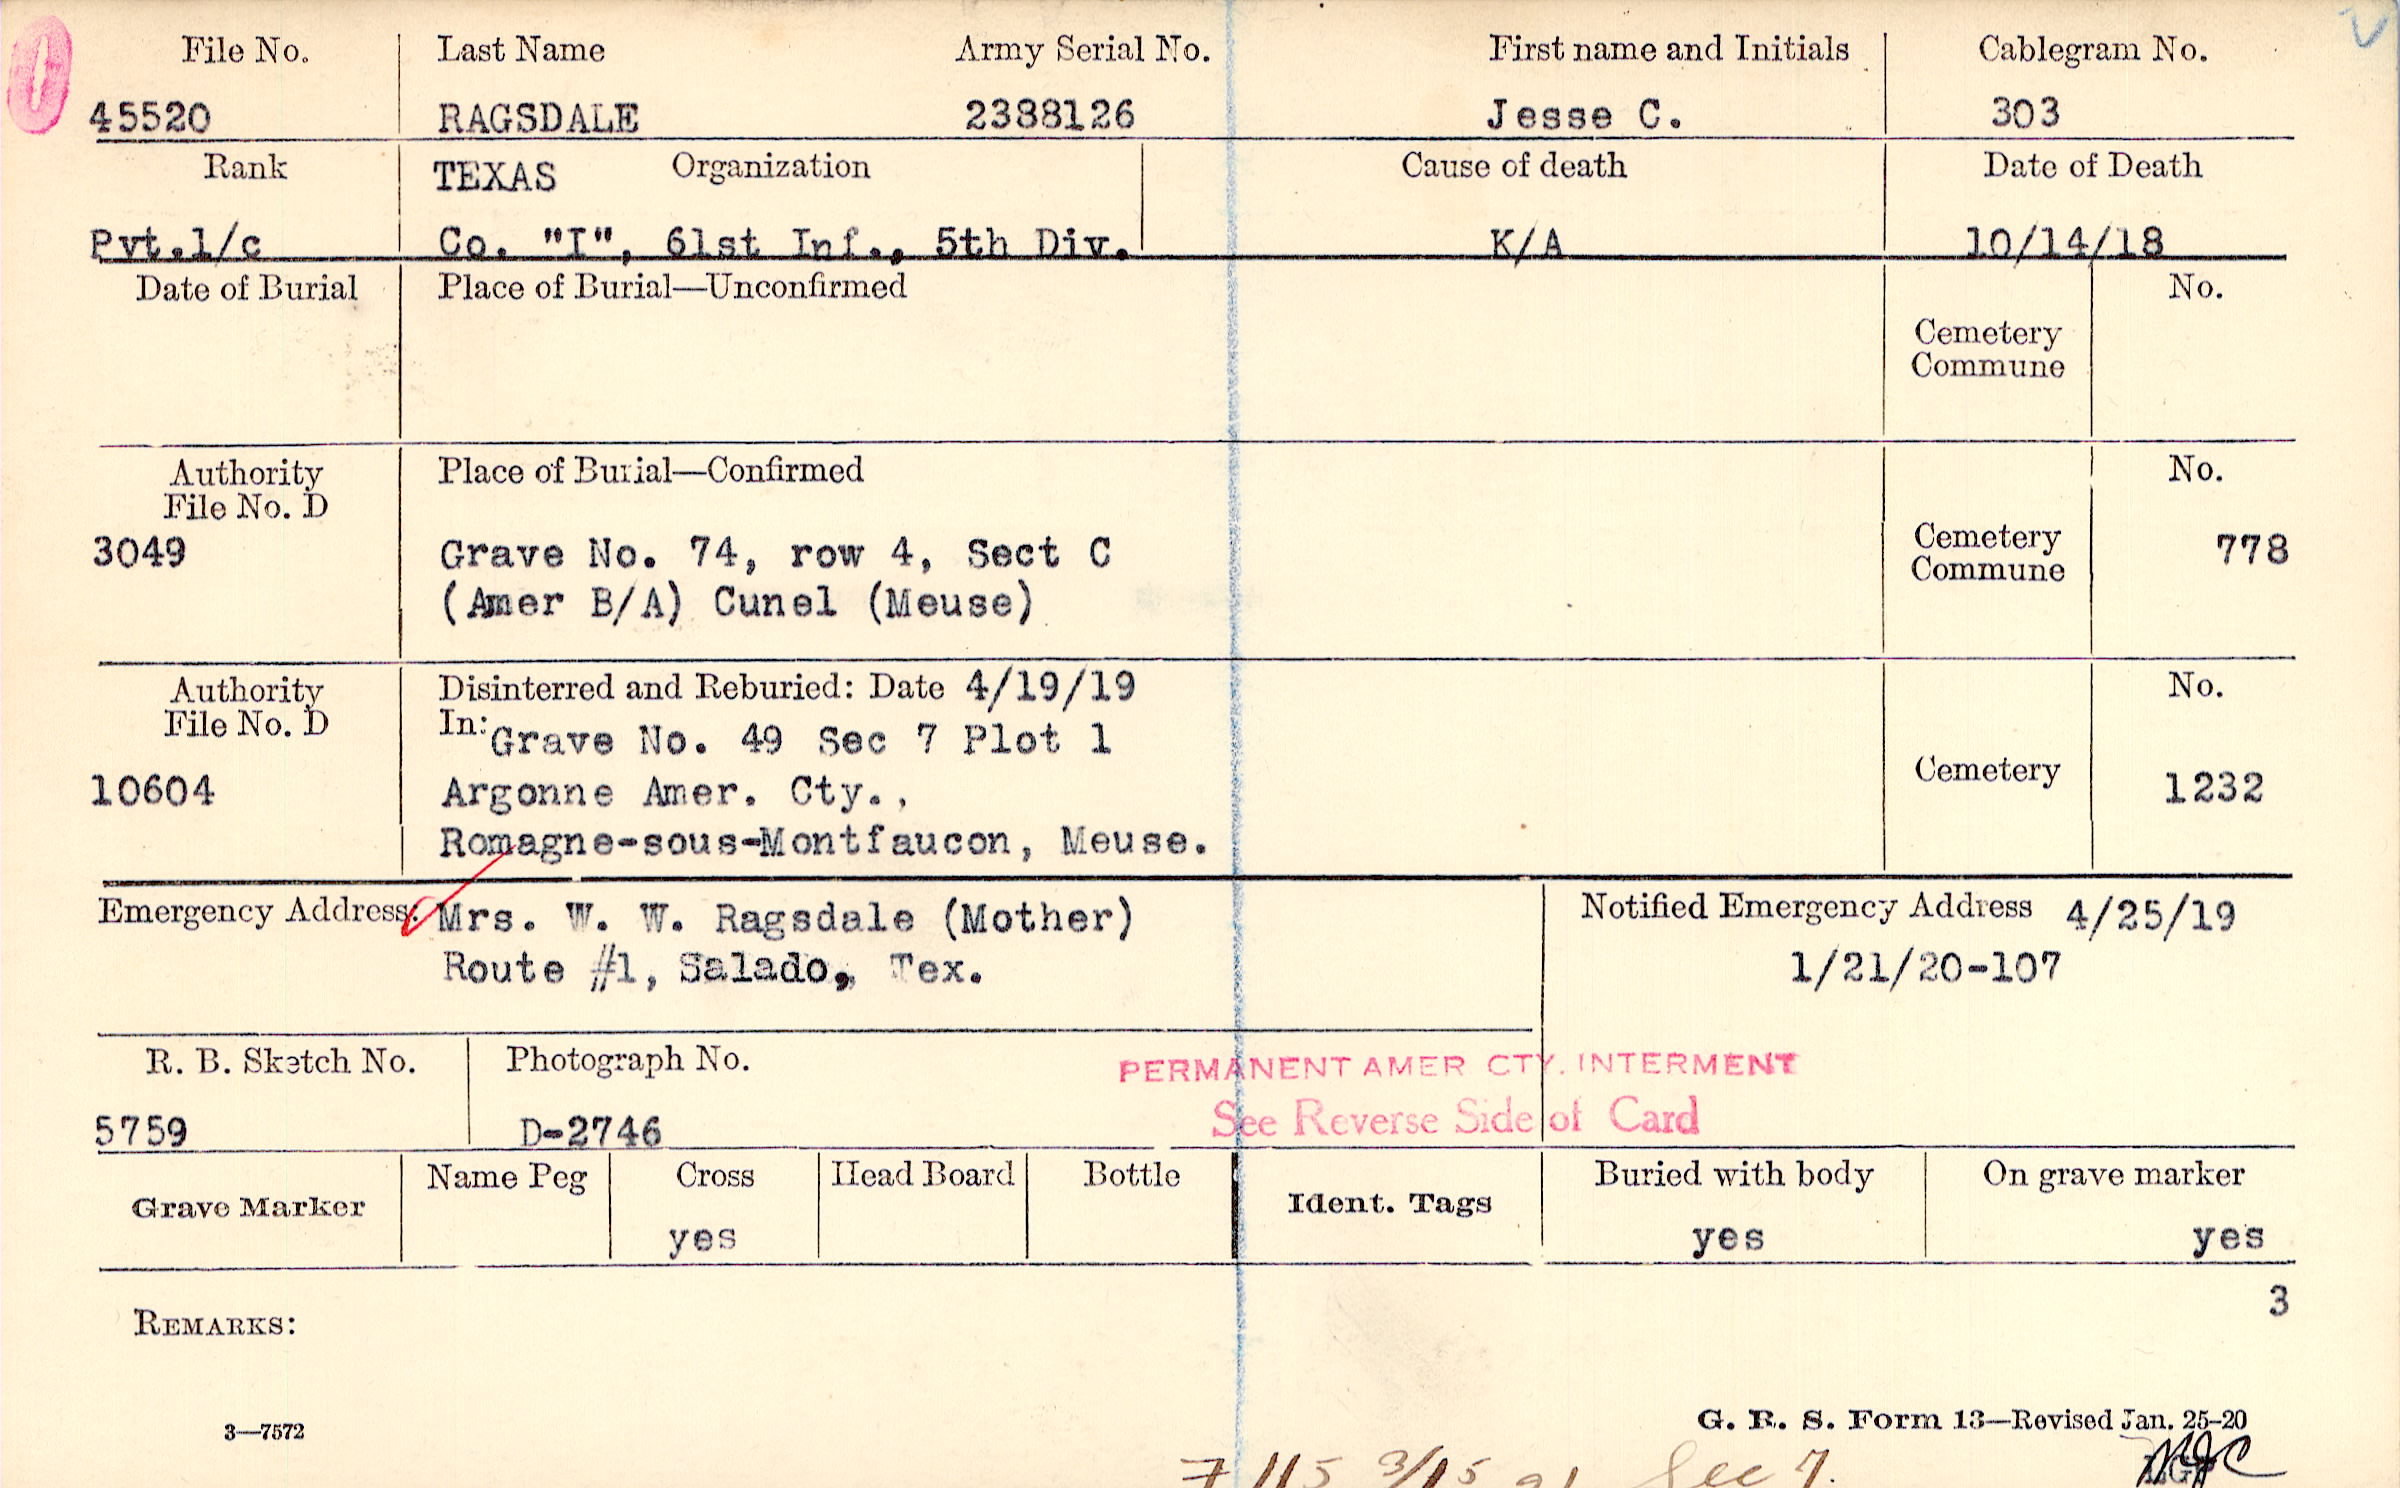 File No. Last Name Army Serial No. First name and Initials Cablegram No.
45520 RAGSDALE 2388126 Jesse C. 303
Rank TEXAS Organization Cause of death Date of Death
Pvt.1/c Co. "I", 61st Inf., 5th Div. K/A 10/14/18
Date of Burial Place of Burial—Unconfirmed No.
Cemetery
Commune
Authority Place of Burial—Confirmed No.
File No. D
3049 Grave No. 74, row 4, Sect C Cemetery 778
Commune
(Amer B/A) Cunel (Meuse)
Authority Disinterred and Reburied: Date 4/19/19 No.
File No. D In: Grave No. 49 Sec 7 Plot 1
10604 Argonne Amer. Cty., Cemetery 1232
Romagne-sous-Montfaucon, Meuse.
Emergency Address: Mrs. W. W. Ragsdale (Mother) Notified Emergency Address 4/25/19
Route #1, Salado, Tex. 1/21/20-107
R. B. Sketch No. Photograph No. PERMANENT AMER CTY. INTERMENT
5759 D-2746 See Reverse Side of Card
Name Peg Cross Head Board Bottle Buried with body On grave marker
Grave Marker Ident. Tags
yes yes yes
3
REMARKS:
3—7572 G. R. S. Form 13—Revised Jan. 25-20
115 3/15 See 7.